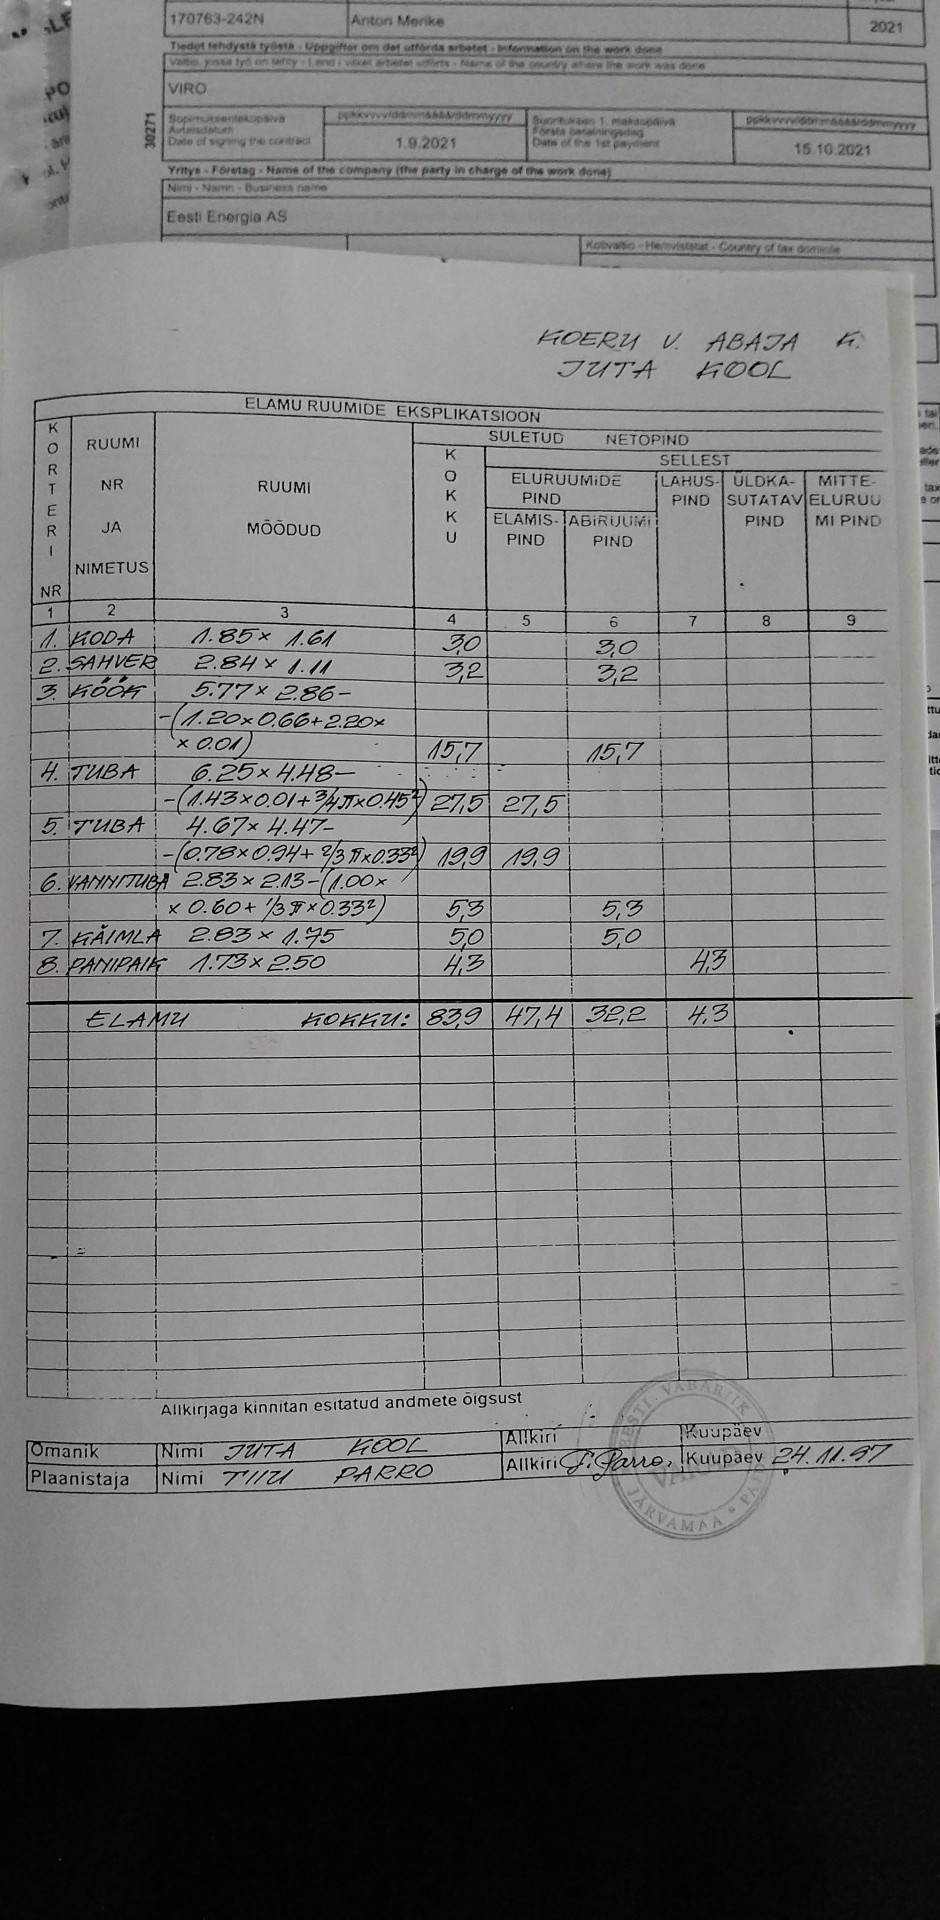 170763-242N Anton Merike 2021
Tiedot tehdystä työstä - Uppgifter om det utförda arbetet - Information on the work done
Valtio, jossa työ on tehty - Land i vilket arbetet utförts - Name of the country where the work was done
VIRO
30271
Sopimuksentekopäivä
Avtalsdatum
Date of signing the contract
1.9.2021
Suorituksen 1. maksupäivä
Första betalningsdag
Date of the 1st payment
15.10.2021
Yritys - Företag - Name of the company (the party in charge of the work done)
Nimi - Namn - Business name
Eesti Energia AS
Kotivaltio - Hemviststat - Country of tax domicile
KOERU V. ABAJA K.
JUTA KOOL
ELAMU RUUMIDE EKSPLIKATSIOON
KORTERI NR
RUUMI NR JA NIMETUS
RUUMI MÕÕDUD
SULETUD NETOPIND
KOKKU
SELLEST
ELURUUMIDE PIND
ELAMIS-PIND
ABIRUUMI PIND
LAHUS-PIND
ÜLDKA-SUTATAV PIND
MITTE-ELURUUMI PIND
1 2 3 4 5 6 7 8 9
1. KODA 1.85 × 1.61 3,0 3,0
2. SAHVER 2.84 × 1.11 3,2 3,2
3. KÖÖK 5.77 × 2.86 -
-(1.20×0.66+2.20×
× 0.01) 15,7 15,7
4. TUBA 6.25 × 4.48 -
-(1.43×0.01+3/4π×0.45²) 27,5 27,5
5. TUBA 4.67 × 4.47 -
-(0.78×0.94+2/3π×0.33²) 19,9 19,9
6. VANNITUBA 2.83 × 2.13 - (1.00×
× 0.60+1/3π×0.33²) 5,3 5,3
7. KÄIMLA 2.83 × 1.75 5,0 5,0
8. PANIPAIK 1.73 × 2.50 4,3 4,3
ELAMU KOKKU: 83,9 47,4 32,2 4.3
Allkirjaga kinnitan esitatud andmete õigsust
Omanik Nimi JUTA KOOL Allkiri Kuupäev
Plaanistaja Nimi TIIU PARRO Allkiri T. Parro, Kuupäev 24.11.97
EESTI VABARIIK
JÄRVAMAA